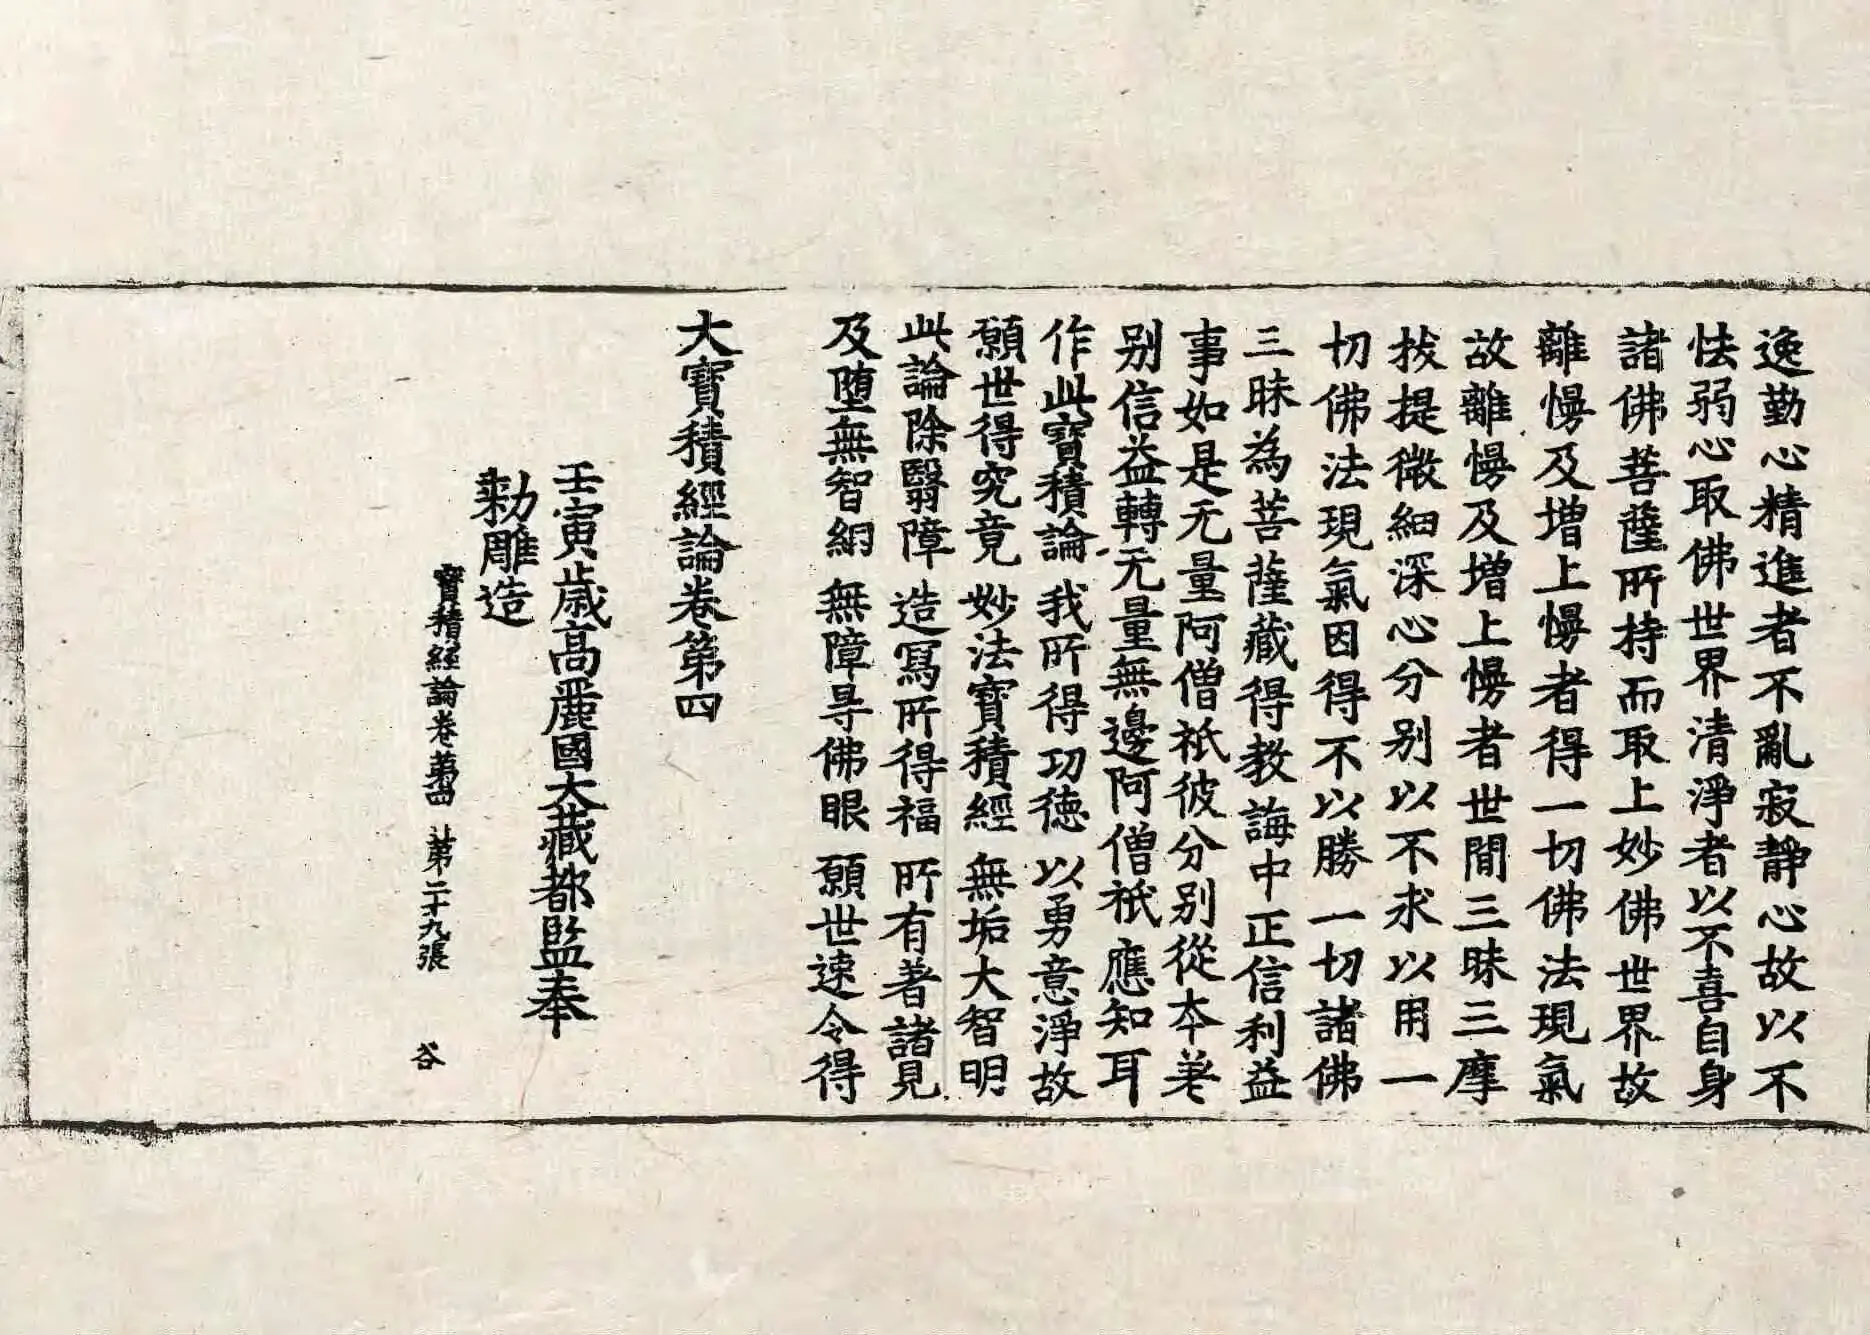 逸勤心精進者不亂寂靜心故以不
怯弱心取佛世界清淨者以不喜自身
諸佛菩薩所持而取上妙佛世界故
離慢及增上慢者得一切佛法現氣
故離慢及增上慢者世間三昧三摩
拔提微細深心分别以不求以用一
切佛法現氣因得不以勝一切諸佛
三昧為菩薩藏得教誨中正信利益
事如是无量阿僧祇彼分别從本業
别信益轉无量無邊阿僧祇應知耳
作此寶積論 我所得功德 以勇意淨故
願世得究竟 妙法寶積經 無垢大智明
此論除翳障 造寫所得福 所有著諸見
及堕無智網 無障㝵佛眼 願世速令得
大寶積經論卷第四
壬寅歲高麗國大藏都監奉
勑雕造
寶積經論卷苐四 苐二十九張 谷